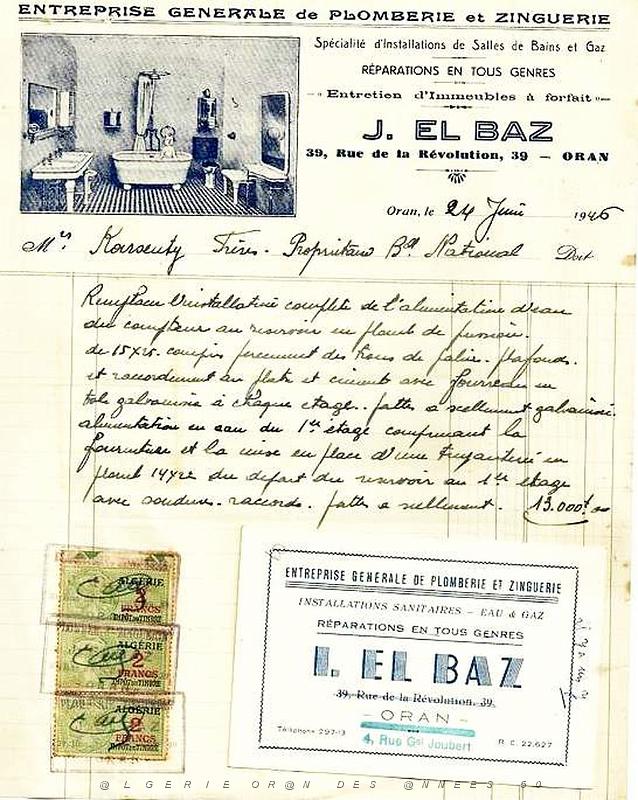 ENTREPRISE GENERALE de PLOMBERIE et ZINGUERIE
Spécialité d'Installations de Salles de Bains et Gaz
RÉPARATIONS EN TOUS GENRES
Entretien d'Immeubles à forfait
J. EL BAZ
39, Rue de la Révolution, 39 — ORAN
Oran, le 24 Juin 1946
Mrs Karsenty Frères. Propriétaire Bd National Doit
Remplacer l'installation complète de l'alimentation d'eau
du compteur au reservoir en plomb de pression.
de 15x25. compris percement des trous de plafonds.
et raccordement au platre et ciment avec fourreau en
tole galvanisée à chaque etage. pattes a scellement galvanisé.
alimentation en eau du 1er étage comprenant la
fourniture et la mise en place d'une tuyauterie en
plomb 14x22 du départ du reservoir au 1er étage
avec soudure. raccords. pattes a scellement. 13.000f
ALGÉRIE
3
FRANCS
IMPÔT DU TIMBRE
ALGÉRIE
2
FRANCS
IMPÔT DU TIMBRE
ALGÉRIE
2
FRANCS
IMPÔT DU TIMBRE
ENTREPRISE GENERALE DE PLOMBERIE ET ZINGUERIE
INSTALLATIONS SANITAIRES — EAU & GAZ
RÉPARATIONS EN TOUS GENRES
I. EL BAZ
39, Rue de la Révolution, 39
- ORAN -
Téléphone 297-13
4, Rue Gal Joubert
R. C. 22.627
@ L G E R I E O R @ N D E S @ N N E E S 6 0